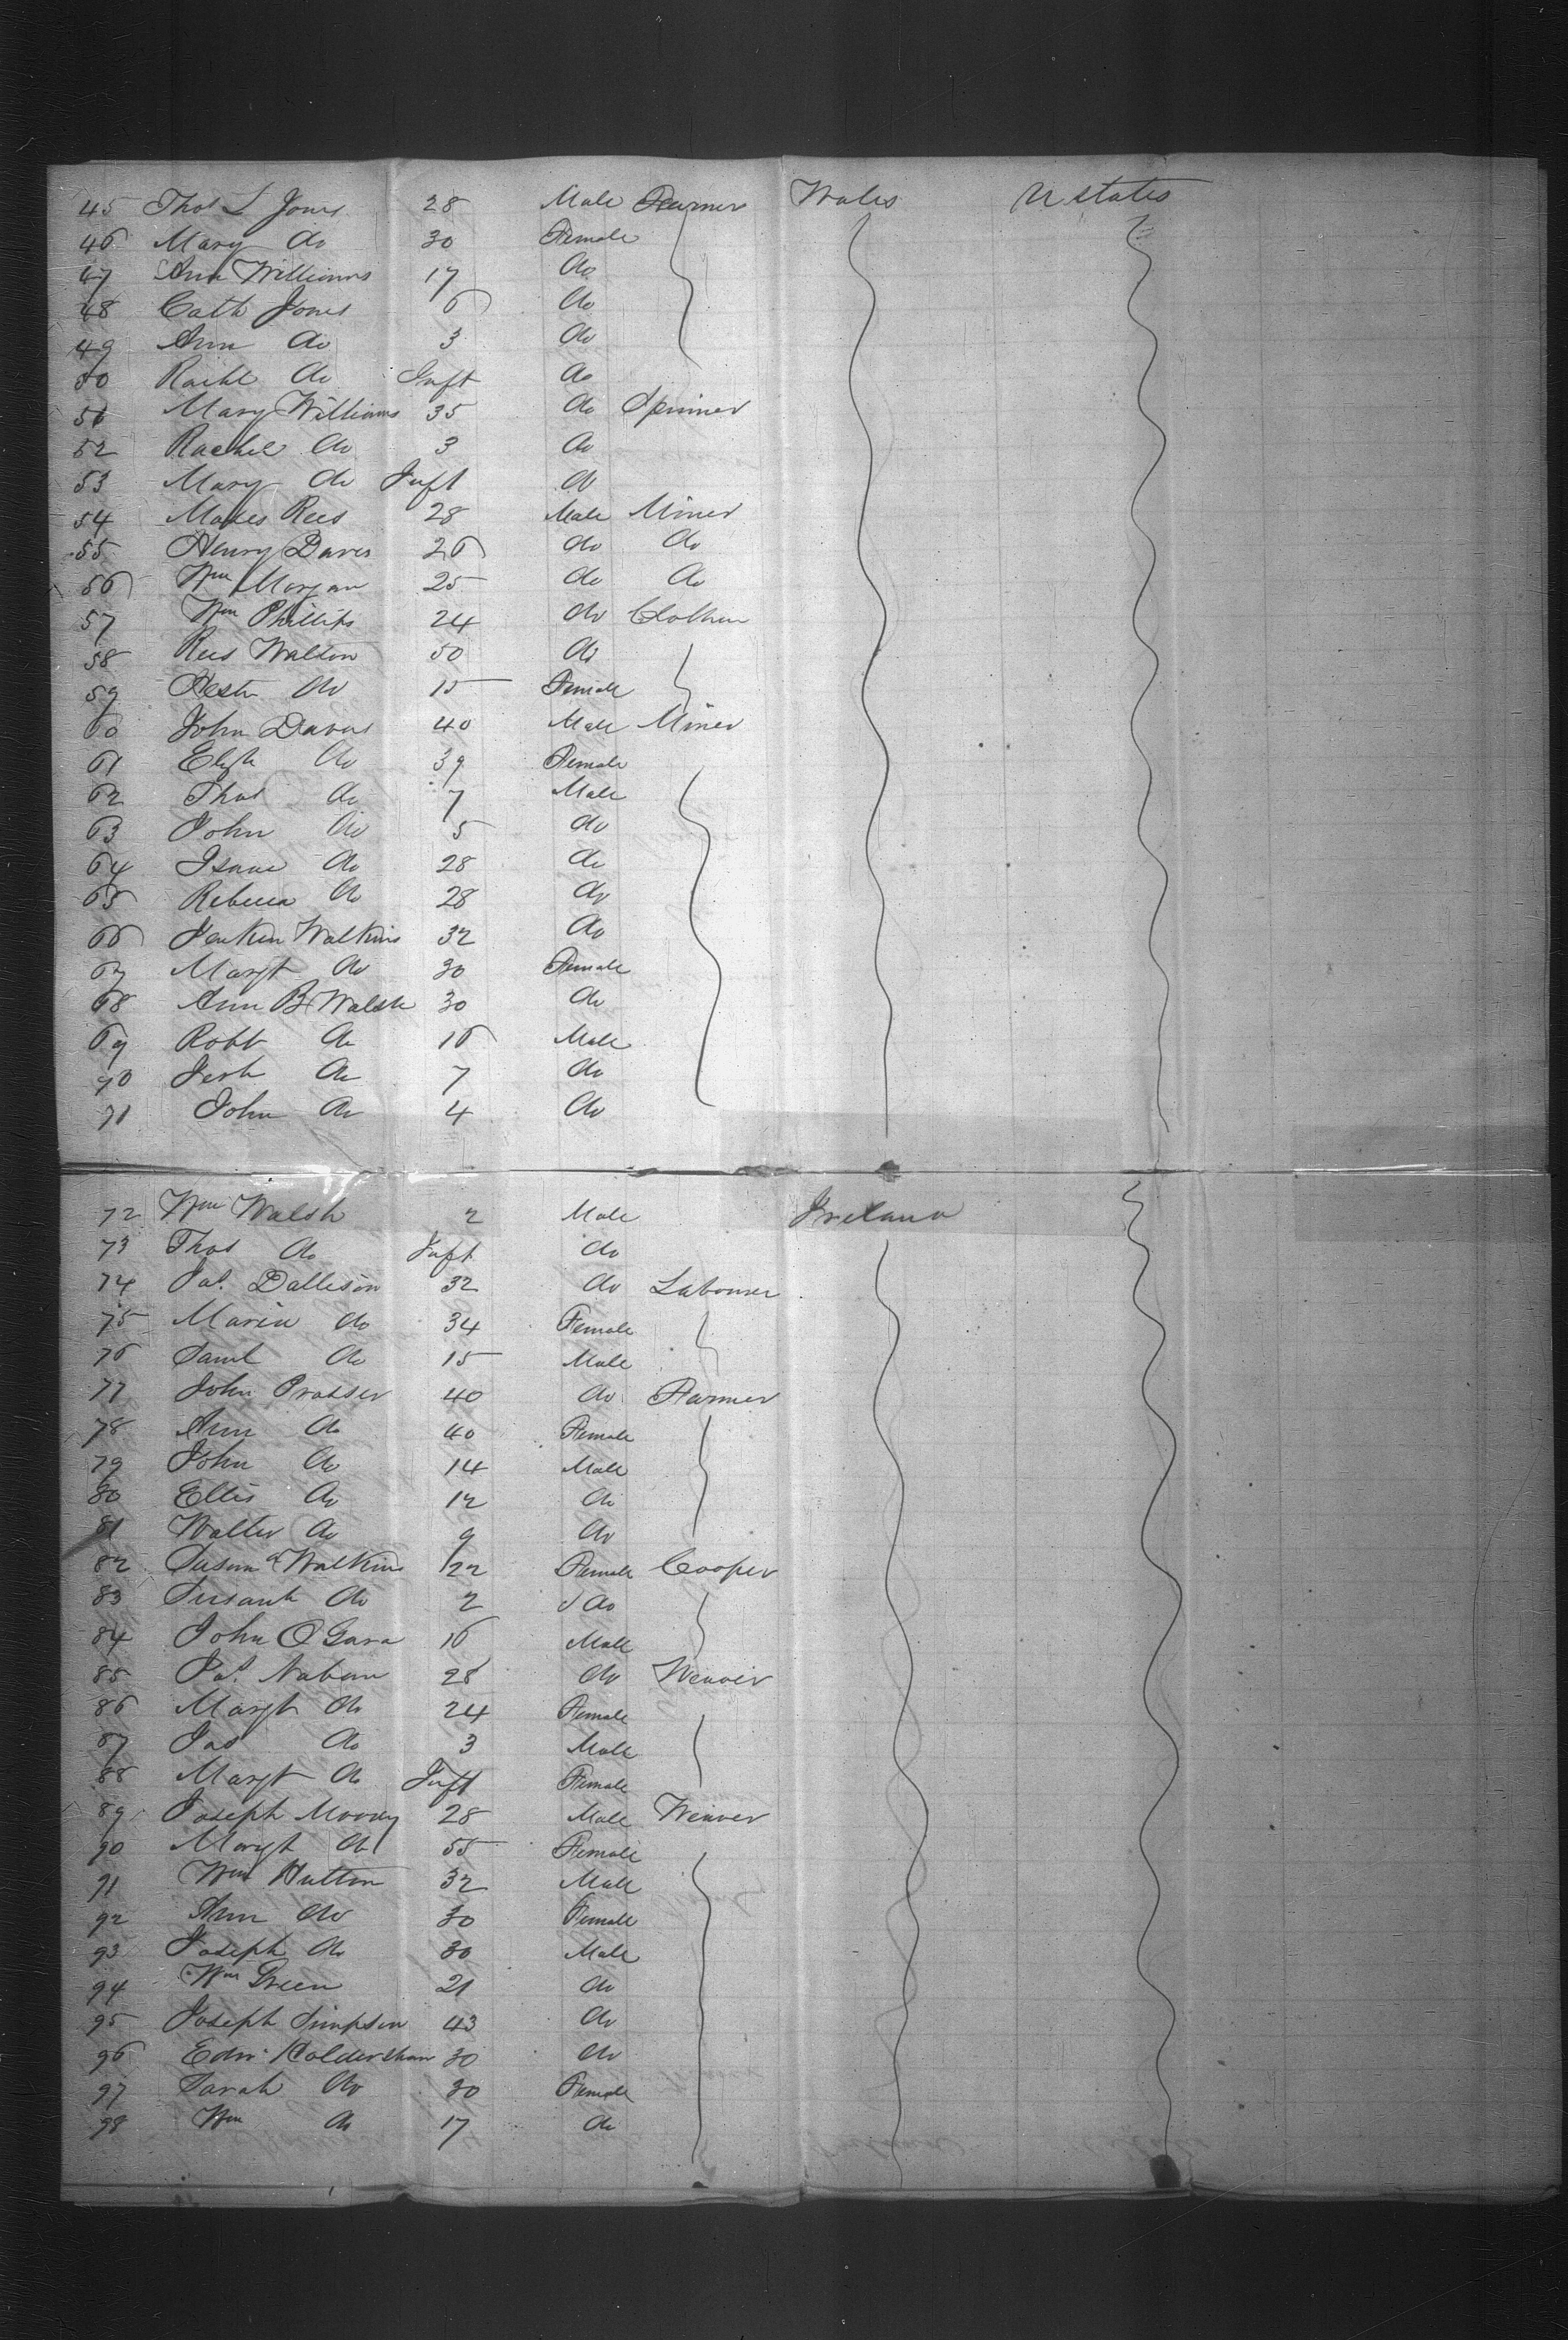 45 Thos L Jones 28 Male Farmer Wales U States
46 Mary do 30 Female
47 Ann Williams 17 do
48 Cath Jones 6 do
49 Ann do 3 do
50 do Inft do
51 Mary Williams 35 do Spinner
52 Rachel do 3 do
53 Mary do Inft do
54 Moses Rees 28 Male Miner
55 Henry Davis 26 do do
56 Wm Morgan 25 do do
57 Wm Phillips 24 do Clothier
58 Rees Walton 50 do
59 Hestr do 15 Female
60 John Davis 40 Male Miner
61 Elizth do 39 Female
62 Thos do 7 Male
63 John do 5 do
64 Isaac do 28 do
65 Rebecca do 28 do
66 Jenkin Watkins 32 do
67 Margt do 30 Female
68 Ann B Walsh 30 do
69 Robt do 16 Male
70 do 7 do
71 John do 4 do
72 Wm Walsh 2 Male Ireland
73 Thos do Inft do
74 Dallison 32 do Labourer
75 Maria do 34 Female
76 Saml do 15 Male
77 John Prosser 40 do Farmer
78 Ann do 40 Female
79 John do 14 Male
80 Ellis do 12 do
81 Walter do 9 do
82 Susan Watkins 22 Female Cooper
83 Susanh do 2 do
84 John O Gara 16 Male
85 28 do Weaver
86 Margt do 24 Female
87 Jas do 3 Male
88 Margt do Inft Female
89 Joseph Moody 28 Male Weaver
90 Margt do 55 Female
91 Wm Hutton 32 Male
92 Ann do 30 Female
93 Joseph do 30 Male
94 Wm Green 21 do
95 Joseph Simpson 43 do
96 Edw 30 do
97 Sarah do 30 Female
98 Wm do 17 do